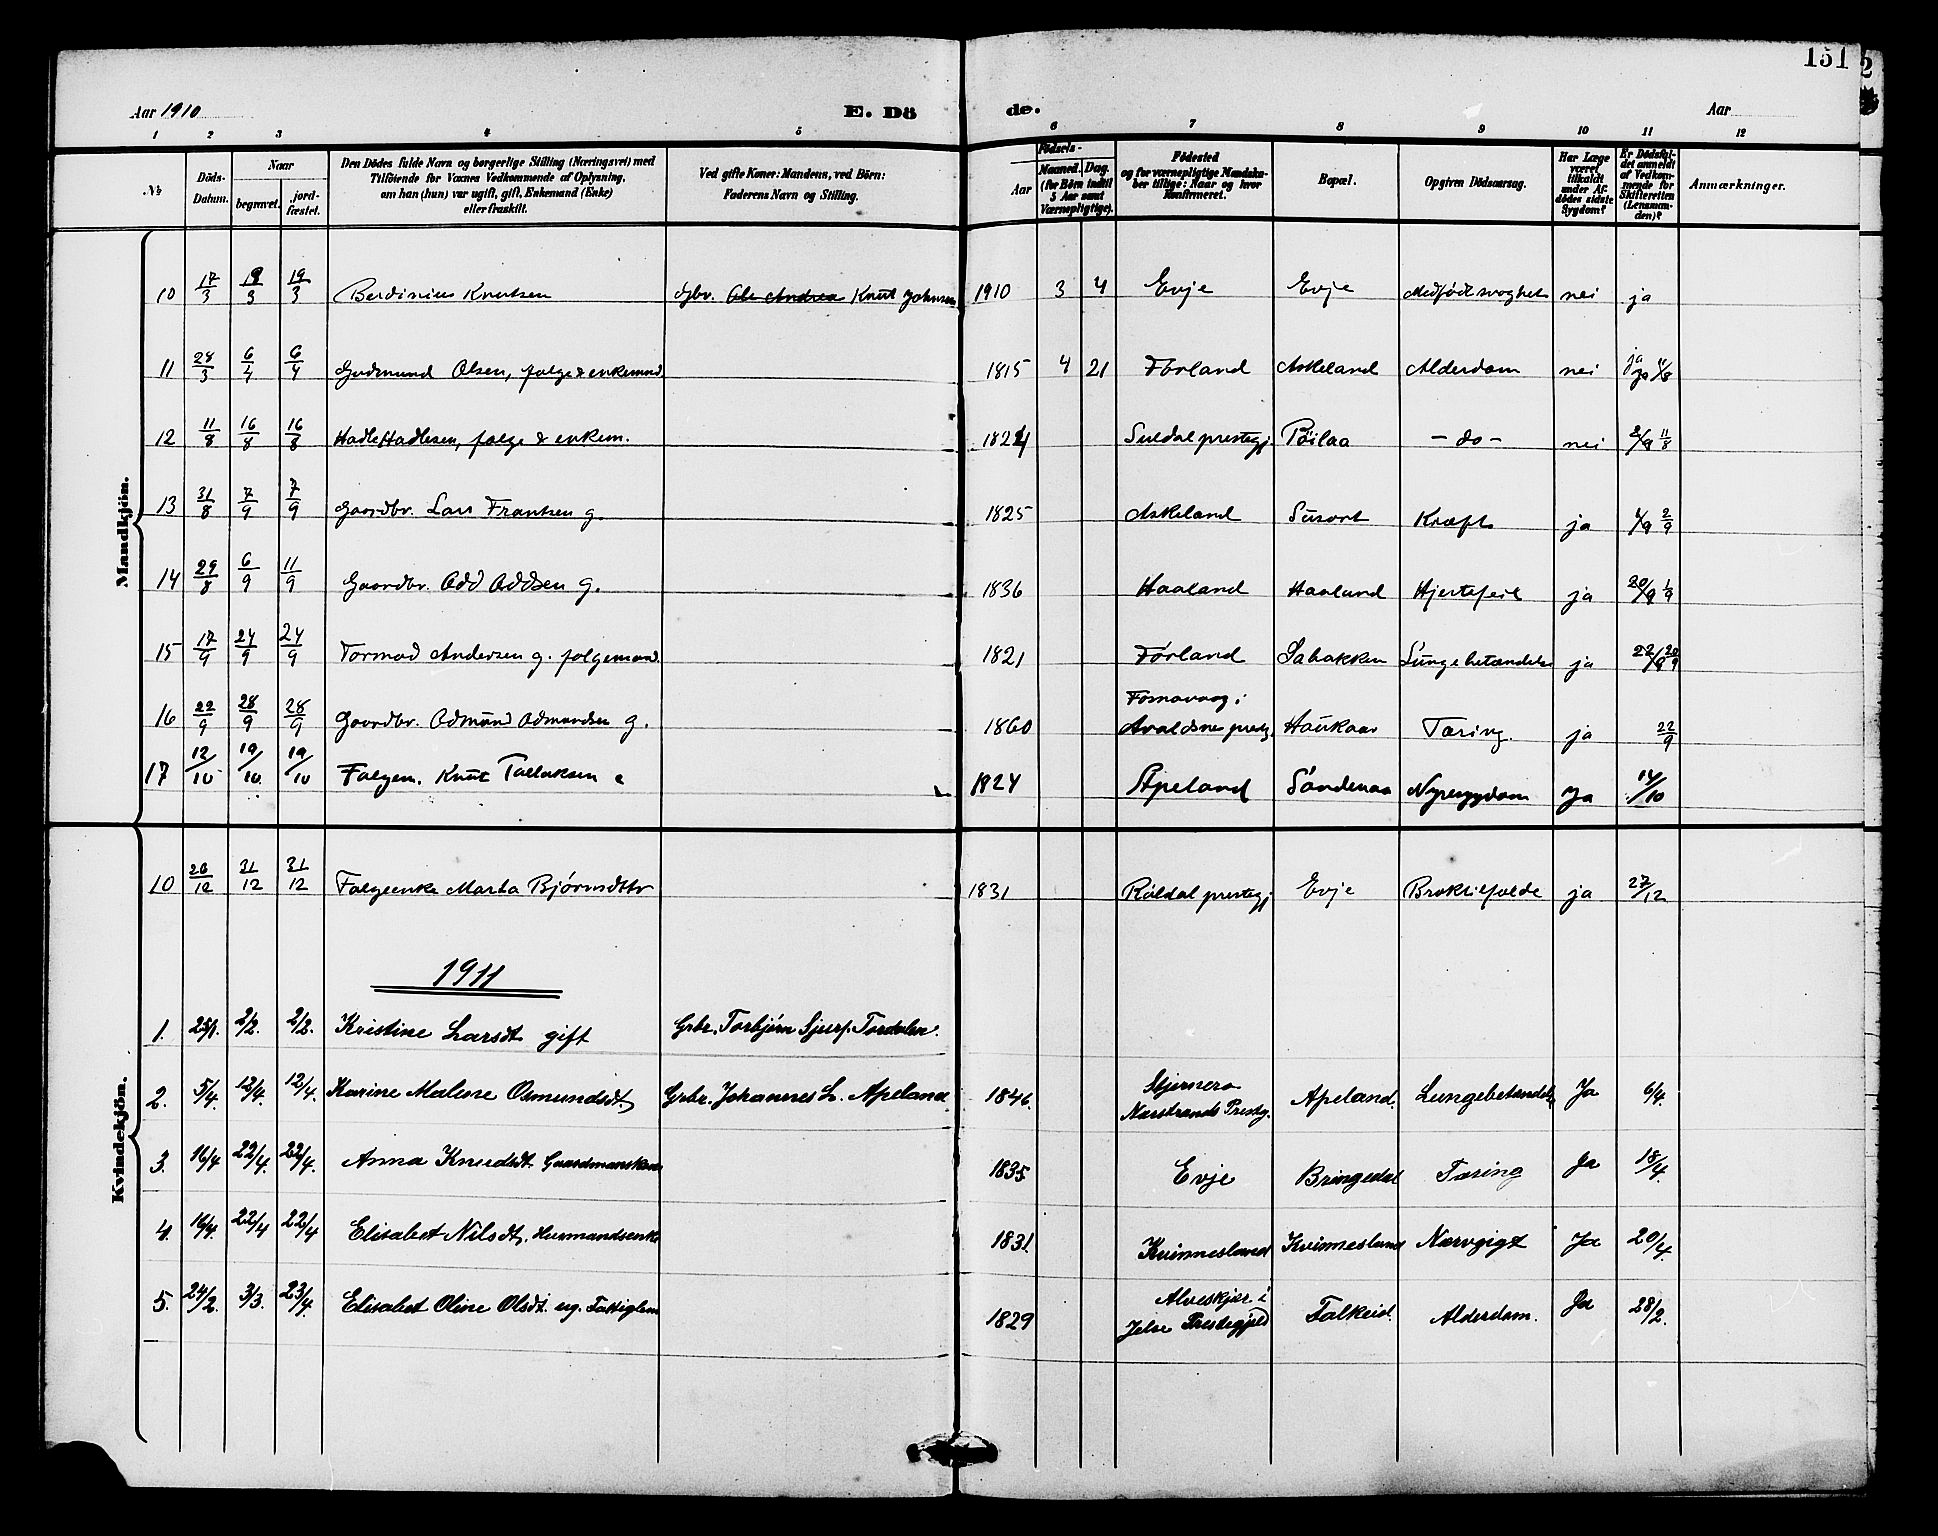 151
Aar 1910 E. Dö de. Aar
1 2 3 4 5 6 7 8 9 10 11 12
№ Döds-Datum. Naar begravet. jord-fæstet. Den Dödes fulde Navn og borgerlige Stilling (Næringsvei) med Tilföiende for Voxnes Vedkommende af Oplysning, om han (hun) var ugift, gift, Enkemand (Enke) eller fraskilt. Ved gifte Koner: Mandens, ved Börn: Faderens Navn og Stilling. Födsels- Aar Maaned. Dag. (for Börn indtil 5 Aar samt Værnepligtige). Födested og for værnepligtige Mandskaber tillige: Naar og hvor Konfirmeret. Bopæl. Opgiven Dödsaarsag. Har Læge været tilkaldt under Afdödes sidste Sygdom? Er Dödsfaldet anmeldt af Vedkommende for Skifteretten (Lensmanden)? Anmærkninger.
Mandkjön.
10 17/3 19/3 19/3 Berdinius Knutsen gbr. Ole Andrea Knut Johnsen 1910 3 4 Evje Evje Medfødt svaghet nei ja
11 28/3 6/4 6/4 Gudmund Olsen, folge & enkemand 1815 4 21 Førland Askeland Alderdom nei ja
12 11/8 16/8 16/8 Hadle Hadlesen, folge & enkem. 1824 Suldal prestegj. - do - nei 11/8
13 31/8 7/9 7/9 Gaardbr. Lars Frantsen g. 1825 Askeland Susort Kræft ja 2/9
14 29/8 6/9 11/9 Gaardbr. Odd Oddsen g. 1836 Haaland Haaland Hjertefeil ja 1/9
15 17/9 24/9 24/9 Tormod Andersen g. folgemand. 1821 Førland Sabakken Lungebetændelse ja 20/9
16 22/9 28/9 28/9 Gaardbr. Odmund Odmundsen g. 1860 Fosnavaag i Avaldsnes prestg. Haukaas Tæring. ja 22/9
17 12/10 19/10 19/10 Folgem. Knut Tollaksen e 1824 Apeland Søndenaa Nyresygdom Ja 14/10
Kvindekjön.
10 26/12 31/12 31/12 Folgeenke Marta Bjørnsdttr 1831 Røldal prestegj Evje Broktilfælde ja 27/12
1911
1. 25/1. 2/2. 2/2. Kristine Larsdt. gift Grbr. Torbjørn Sjurs. Tordalen.
2. 5/4. 12/4. 12/4. Karine Malene Osmundsdt. Grbr. Johannes L. Apeland 1846. Stjernerø Nærstrands Prestg. Apeland. Lungebetændels Ja 6/4.
3. 16/4 22/4. 22/4. Anna Knudsdt. Gaardmandskone 1835 Evje Bringedal Tæring Ja 18/4.
4. 16/4. 22/4 22/4 Elisabet Nilsdt. Husmandsenke 1831. Kvinnesland Kvinnesland Nærvgigt Ja 20/4.
5. 24/2. 3/3. 23/4. Elisabet Oline Olsdt. ug. Fattiglem 1829 Alveskjær i Jelse Prestegjeld Falkeid. Alderdom. Ja 28/2.